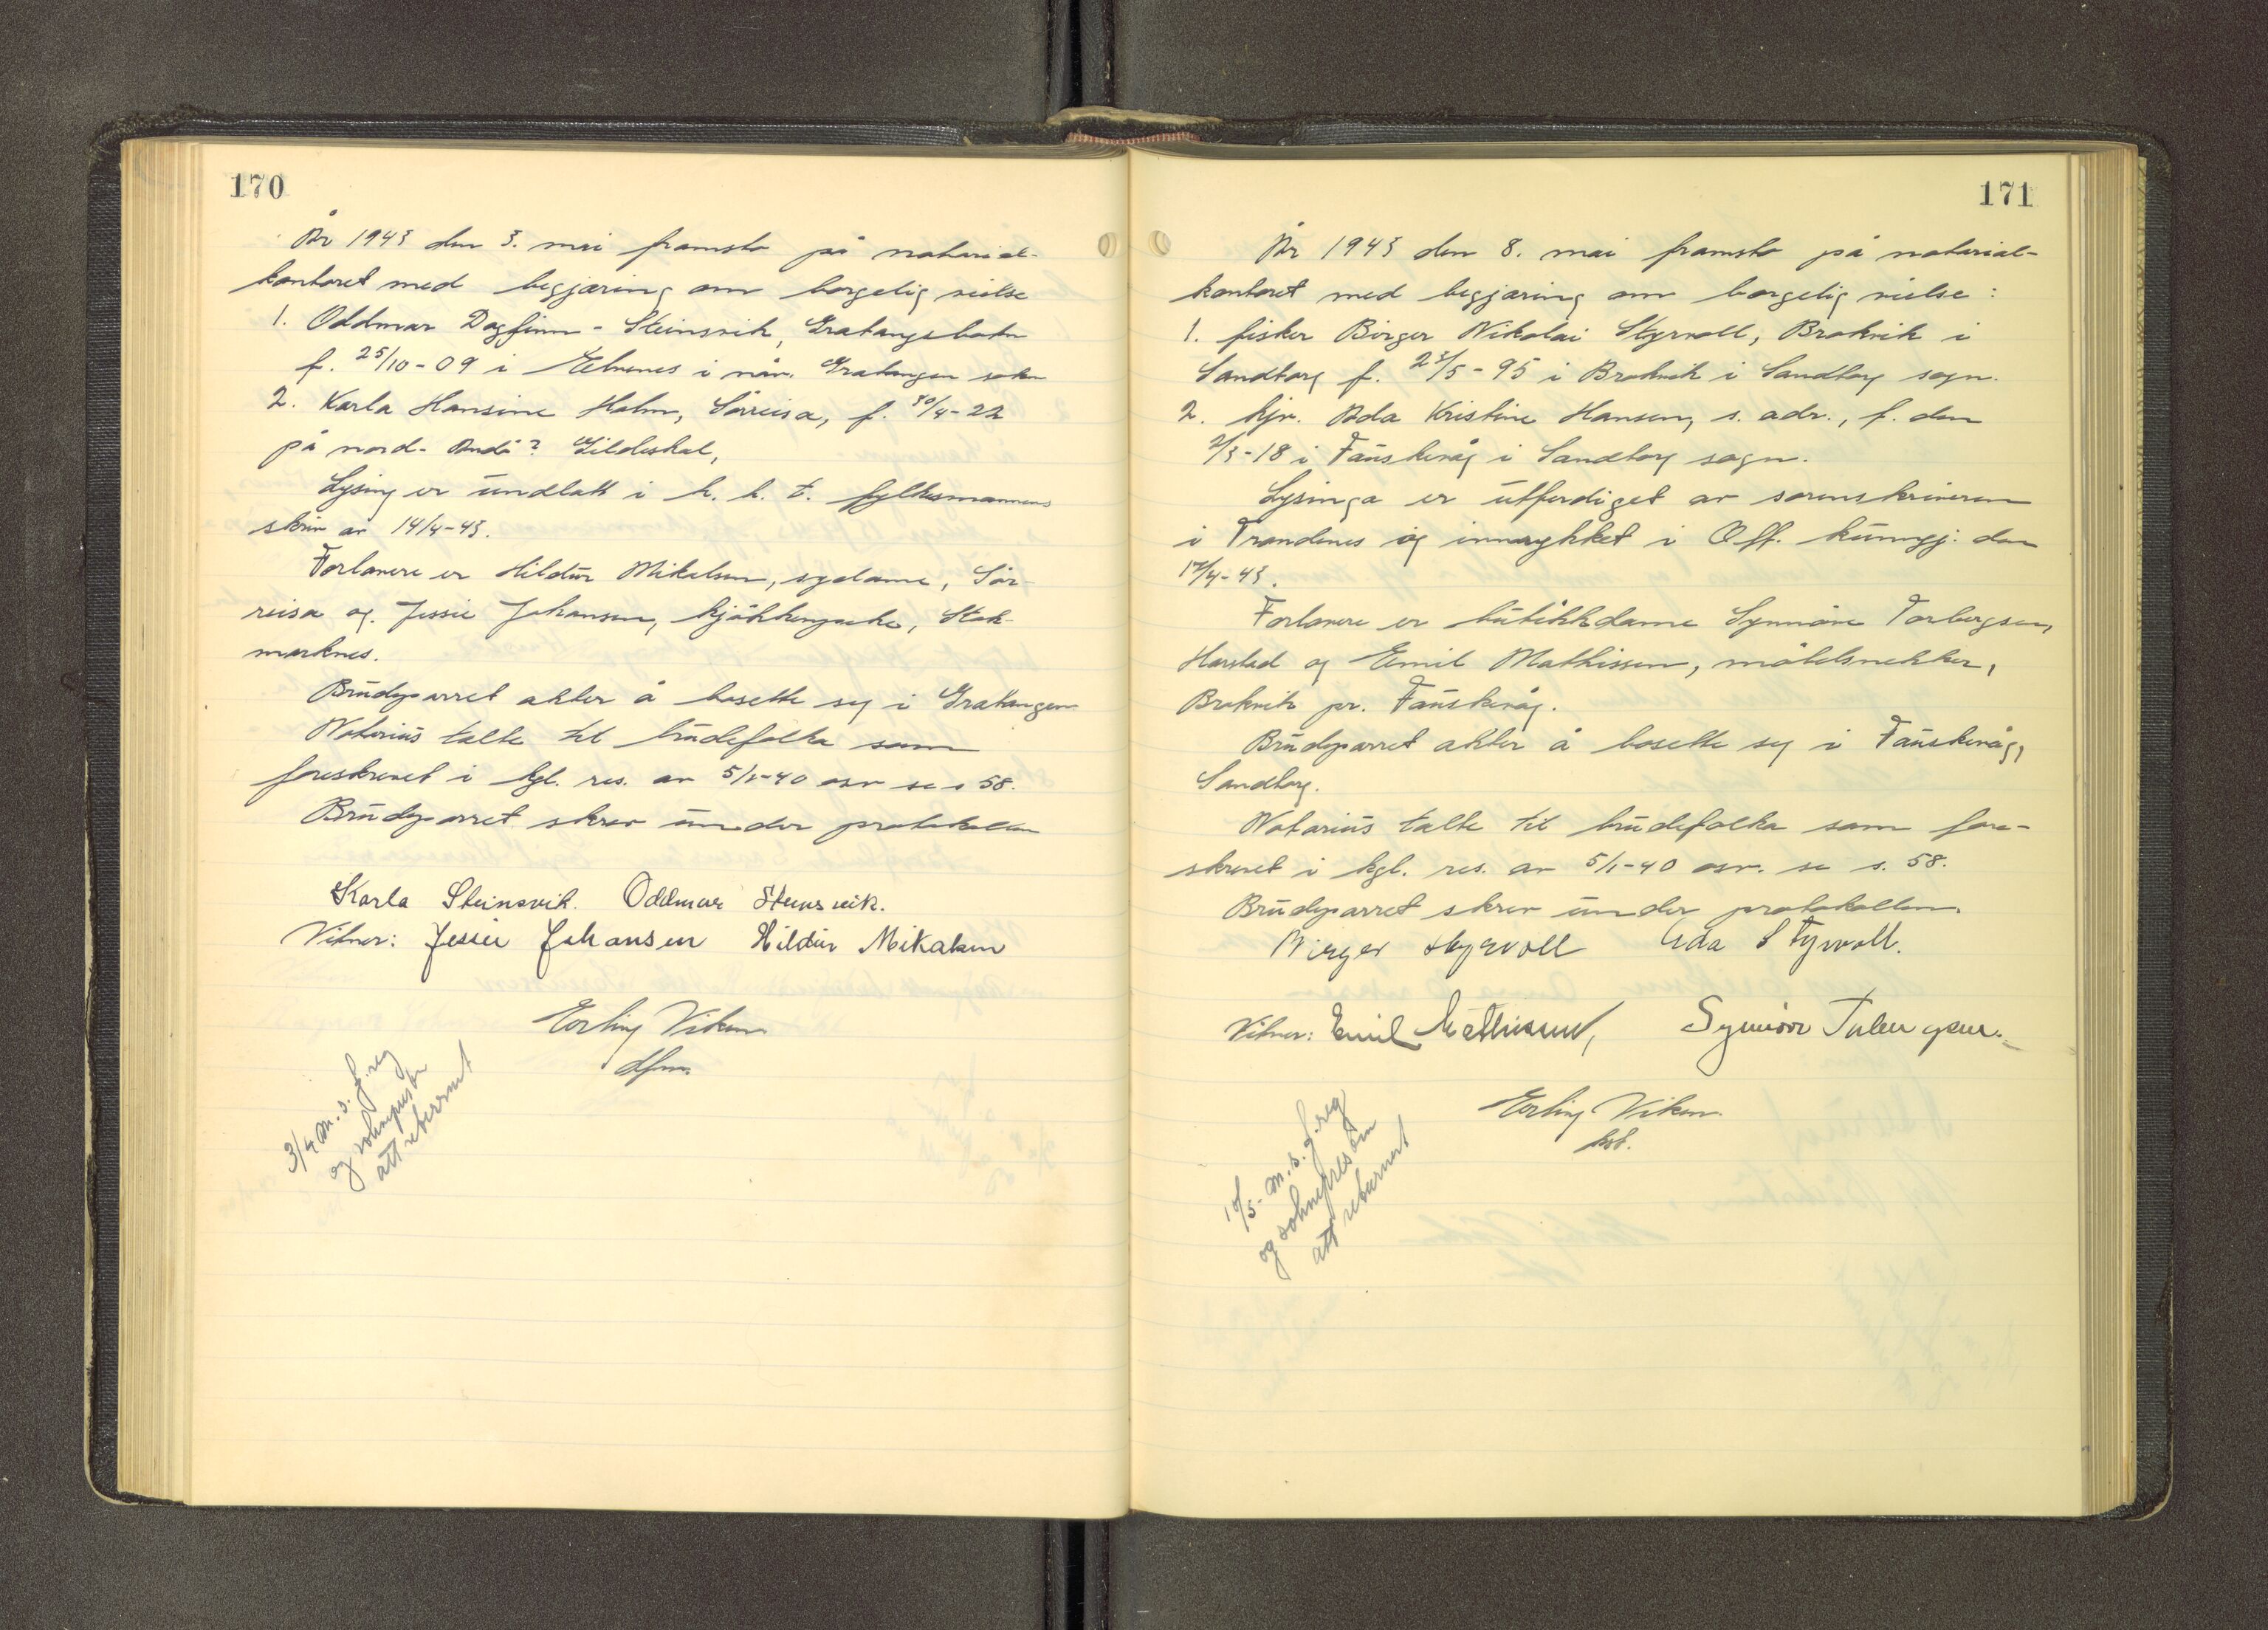 170
År 1943 den 3. mai framsto på notarial-
kontoret med begjæring om borgelig vielse
1. Oddmar Dagfinn - Steinsvik, Gratangsbotn
f. 25/10-09 i Elvenes i nåv. Gratangen sokn
2. Karla Hansine Holm, Sørreisa, f. 30/4-22
på nord- Andö? Gildeskal,
Lysing er undlatt i h. h. t. fylkesmannens
skriv av 14/4-43.
Forlovere er Hildur Mikalsen, sydame, Sör-
reisa og Jessie Johansen, kjökkenpike, Stok-
marknes.
Brudeparret akter å bosette seg i Gratangen
Notarius talte til brudefolka som
foreskrevet i kgl. res. av 5/1-40 osv se s 58.
Brudeparret skrev under protokollen
Karla Steinsvik. Oddmar Steinsvik.
Vitner: Jessie Johansen Hildur Mikalsen
Erling Viken
dfm.
3/4 m. s. f. reg
og
att returnert
171
År 1943 den 8. mai framsto på notarial-
kontoret med begjæring om borgelig vielse:
1. fisker Birger Nikolai Styrvoll, Brokvik i
Sandtorg f. 23/5-95 i Brokvik i Sandtorg sogn.
2. hjv. Ada Kristine Hansen, s. adr., f. den
2/3-18 i Fauskevåg i Sandtorg sogn.
Lysinga er utferdiget av sorenskriveren
i Trondenes og innrykket i Off. kunngj. den
17/4-43.
Forlovere er butikkdame Synnöve Torbergsen,
Harstad og Emil Mathissen, möbelsnekker,
Brokvik pr. Fauskevåg.
Brudeparret akter å bosette seg i Fauskevåg,
Sandtorg.
Notarius talte til brudefolka som fore-
skrevet i kgl. res. av 5/1-40 osv. se s. 58.
Brudeparret skrev under protokollen.
Birger Styrvoll Ada Styrvoll.
Vitner: Emil Mathissen, Synnöve Torbergsen.
Erling Viken
kst.
10/5- m. s. f. reg
og
att returnert